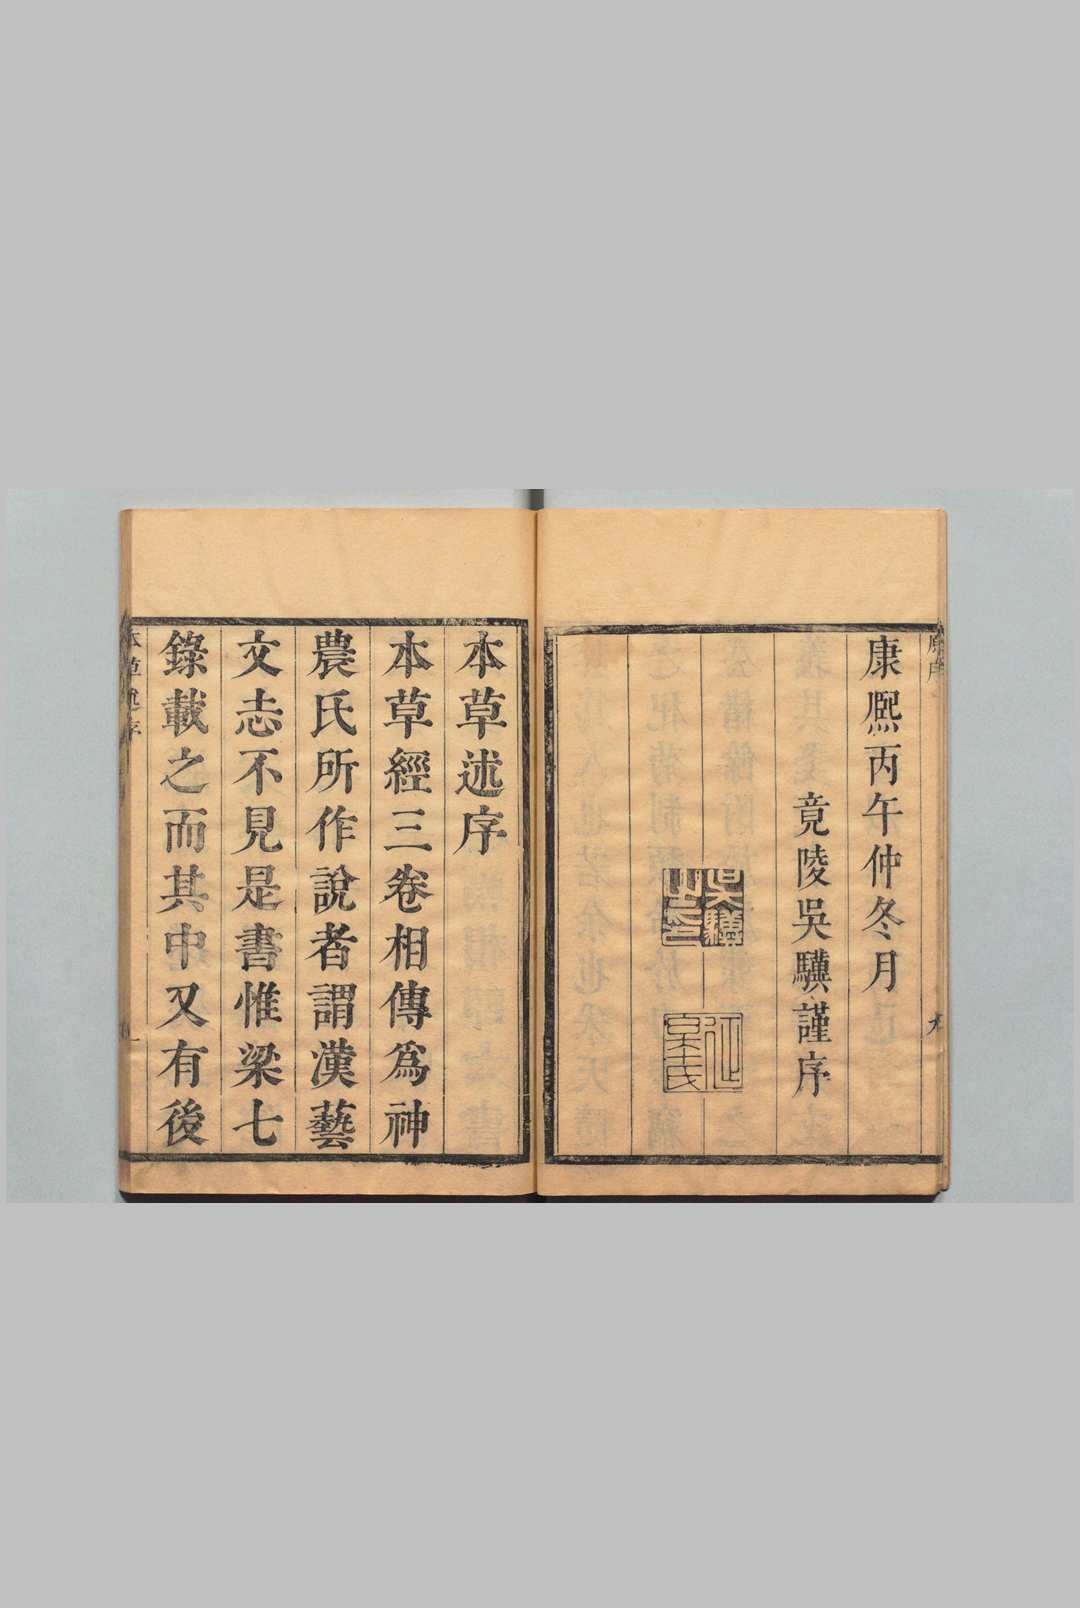 康熙丙午仲冬月
竟陵吳驥謹序
本草述序
本草經三卷相傳爲神
農氏所作說者謂漢藝
文志不見是書惟梁七
錄載之而其中又有後
本草述序
一